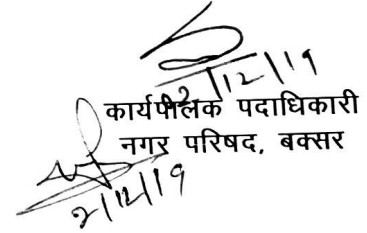 02/12/19
कार्यपालक पदाधिकारी
नगर परिषद, बक्सर
2/12/19